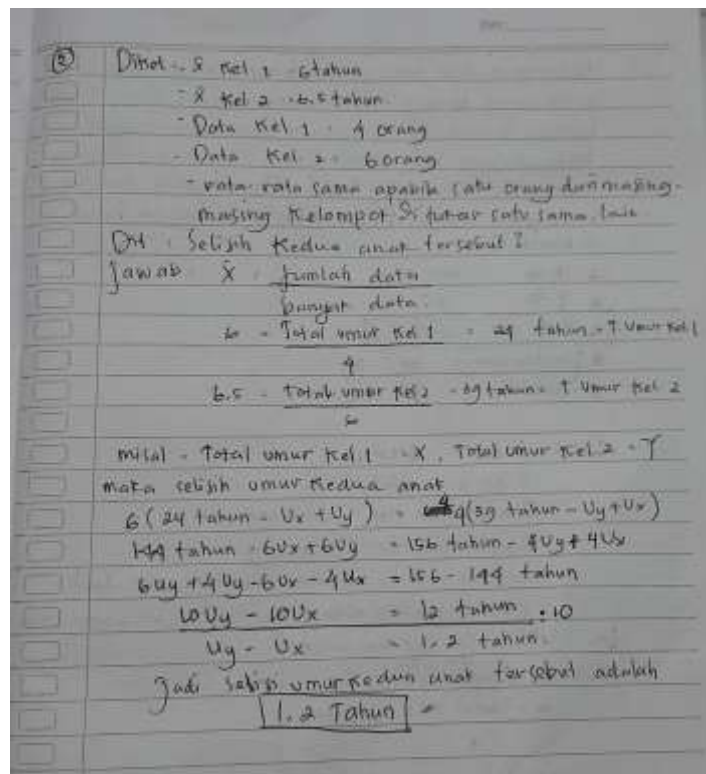 ② Diket : - x̄ Kel 1 = 6 tahun
- x̄ Kel 2 = 6.5 tahun
- Data Kel 1 = 4 orang
- Data Kel 2 = 6 orang
- rata-rata sama apabila satu orang dari masing-
masing Kelompok di tukar satu sama lain
Dit : Selisih Kedua anak tersebut?
Jawab x̄ = Jumlah data
banyak data
6 = Total umur Kel 1 = 24 tahun = T. Umur Kel 1
4
6.5 = Total umur Kel 2 = 39 tahun = T. Umur Kel 2
6
misal = Total umur Kel. 1 = X, Total umur Kel. 2 = Y
maka selisih umur Kedua anak
6 (24 tahun - Ux + Uy) = 4 (39 tahun - Uy + Ux)
144 tahun - 6Ux + 6Uy = 156 tahun - 4Uy + 4Ux
6Uy + 4Uy - 6Ux - 4Ux = 156 - 144 tahun
10Uy - 10Ux = 12 tahun : 10
Uy - Ux = 1.2 tahun.
Jadi selisih umur Kedua anak tersebut adalah
1.2 Tahun